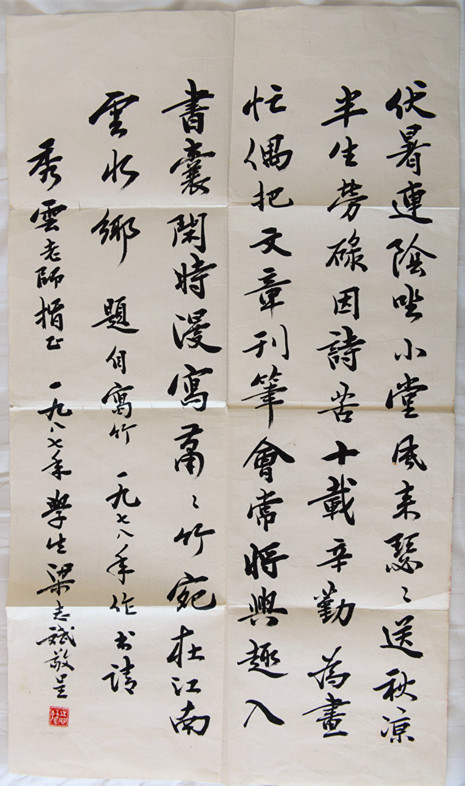 伏暑連陰坐小堂風来瑟々送秋凉
半生勞碌因詩苦十載辛勤為畫
忙偶把文章刊筆會常將興趣入
書囊閑時漫寫蕭々竹宛在江南
雲水鄉 題自寫竹 一九七八年作書請
秀雲老師指正 一九八七年學生梁志斌敬呈